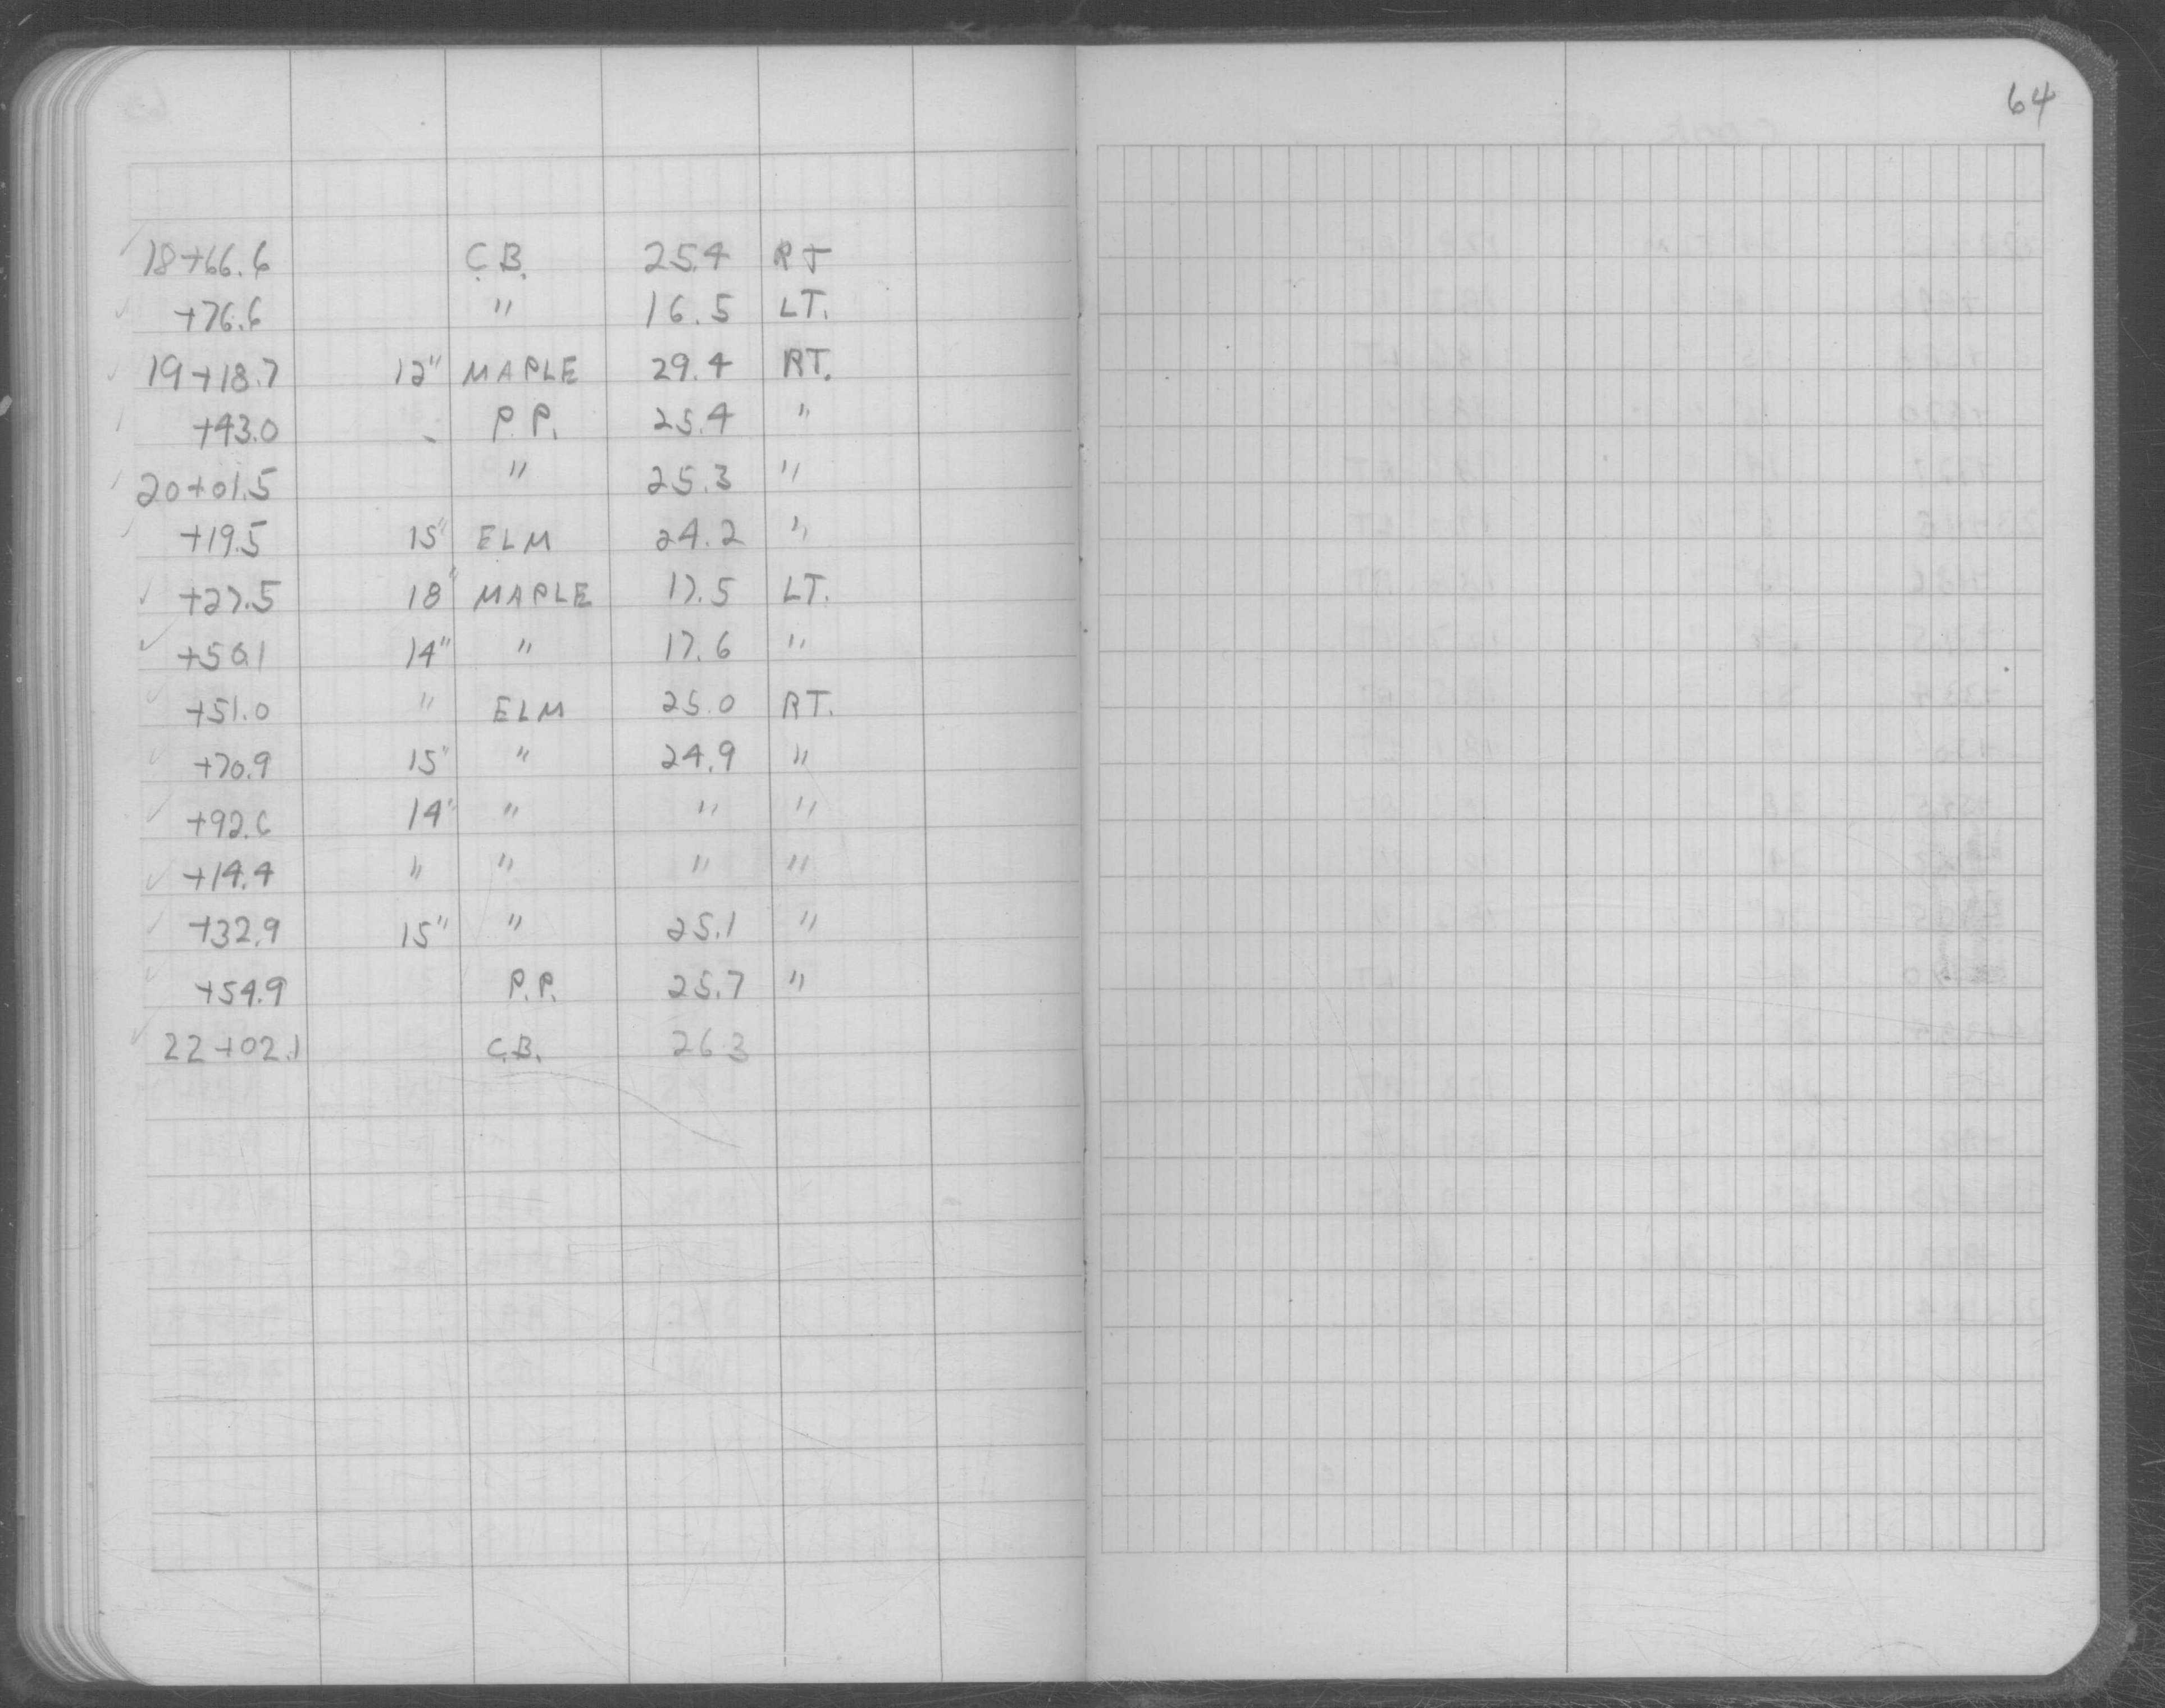 64
✓ 18+66.6 C.B. 25.4 RT
✓ +76.6 " 16.5 LT.
✓ 19+18.7 12" MAPLE 29.4 RT.
✓ +43.0 - P.P. 25.4 "
✓ 20+01.5 " 25.3 "
✓ +19.5 15" ELM 24.2 "
✓ +27.5 18" MAPLE 17.5 LT.
✓ +50.1 14" " 17.6 "
✓ +51.0 " ELM 25.0 RT.
✓ +70.9 15" " 24.9 "
✓ +92.6 14" " " "
✓ +14.4 " " " "
✓ +32.9 15" " 25.1 "
✓ +54.9 P.P. 25.7 "
✓ 22+02.1 C.B. 26.3